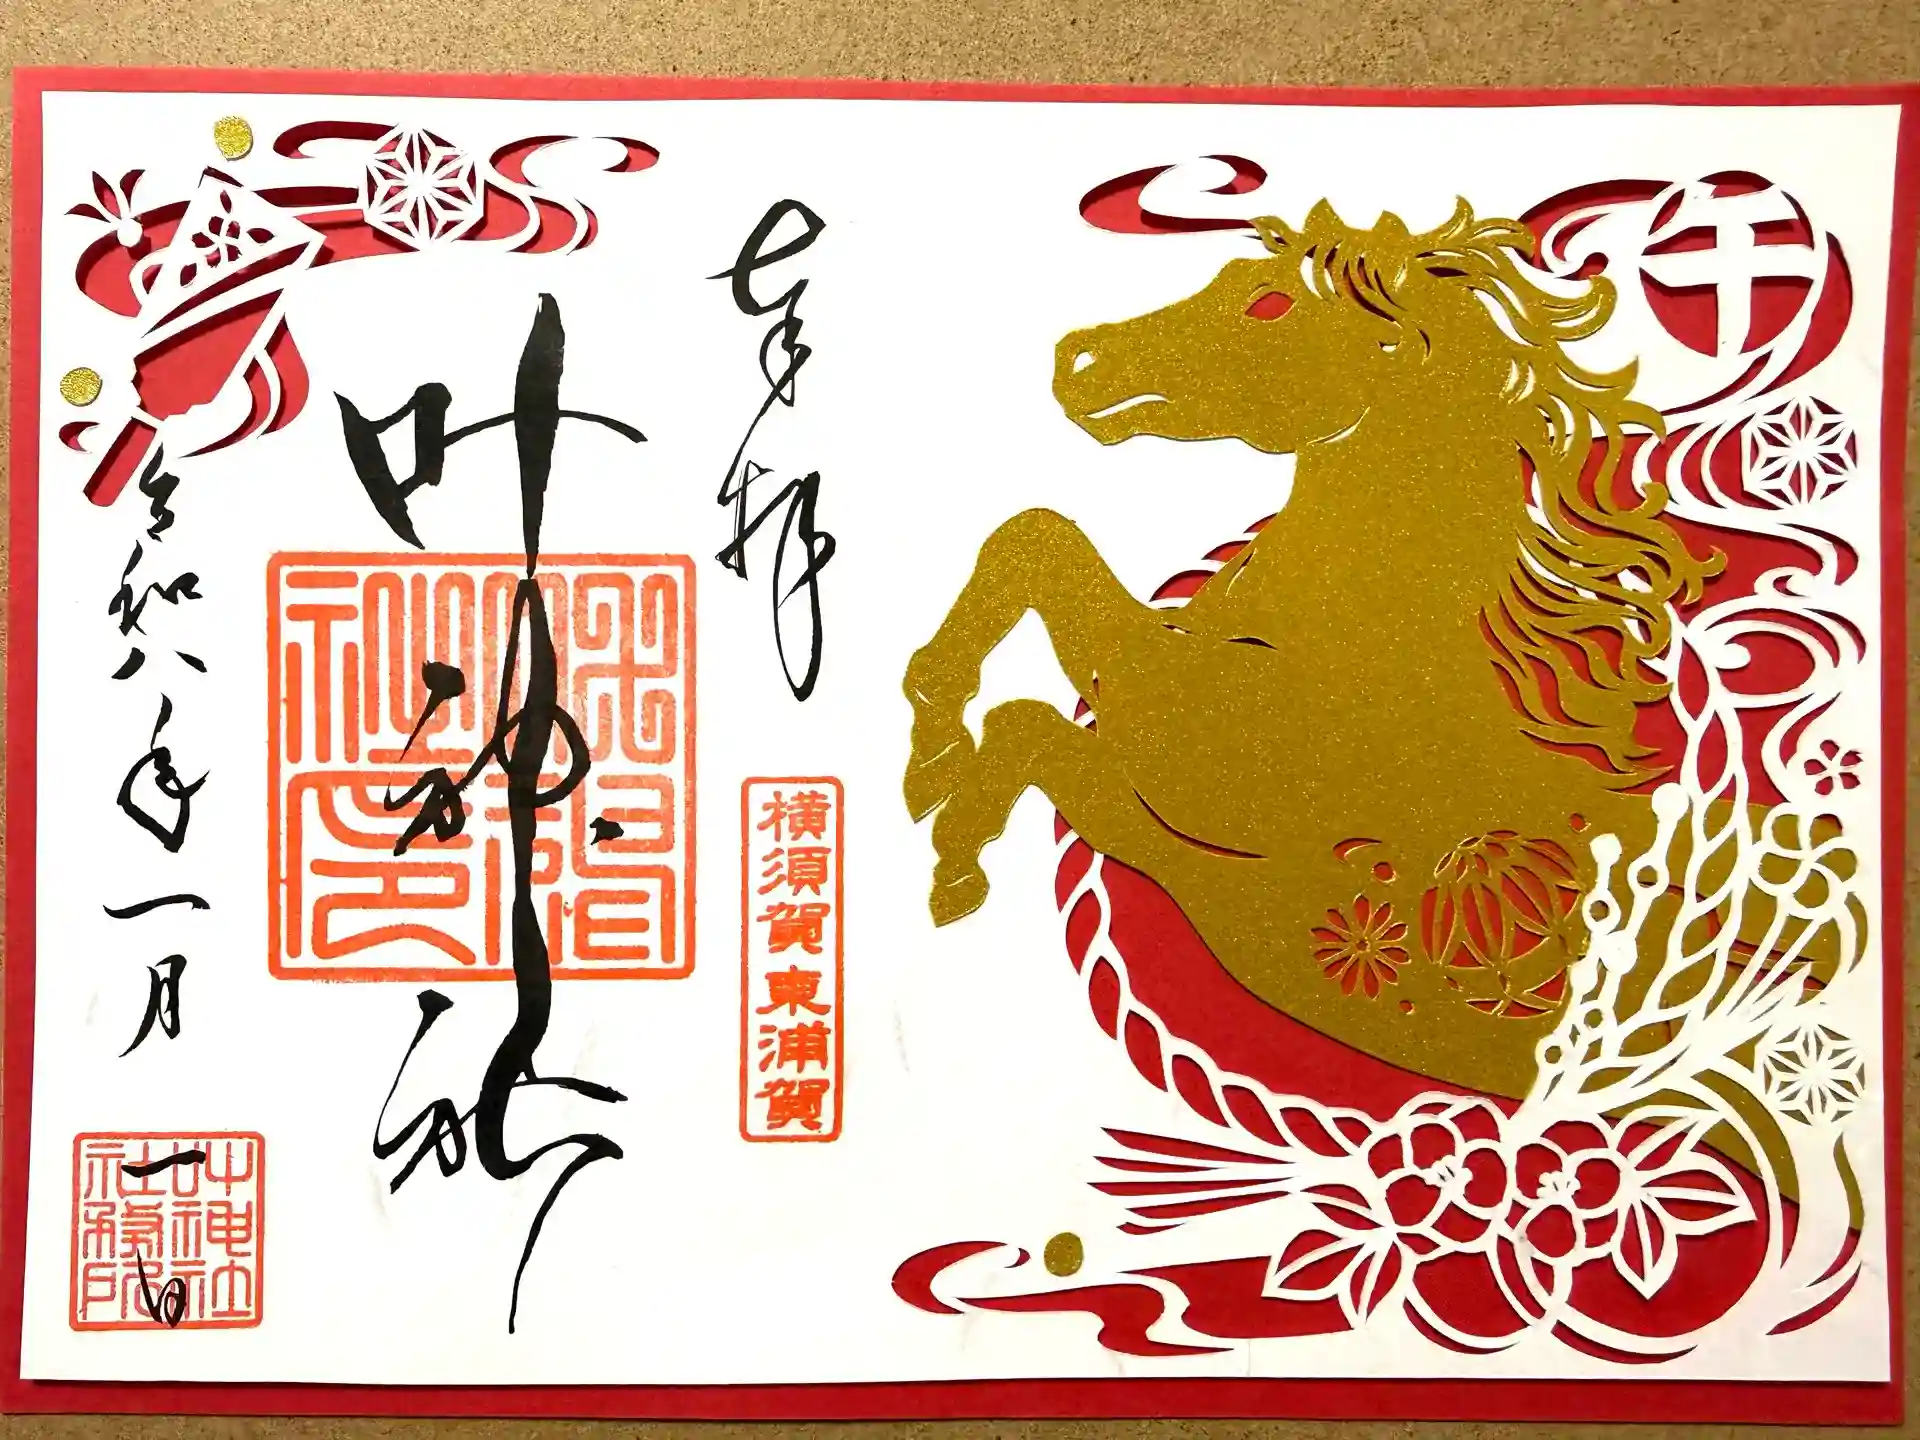 午
奉拝
横須賀東浦賀
叶神社
令和八年一月
一日
叶神社
社務所